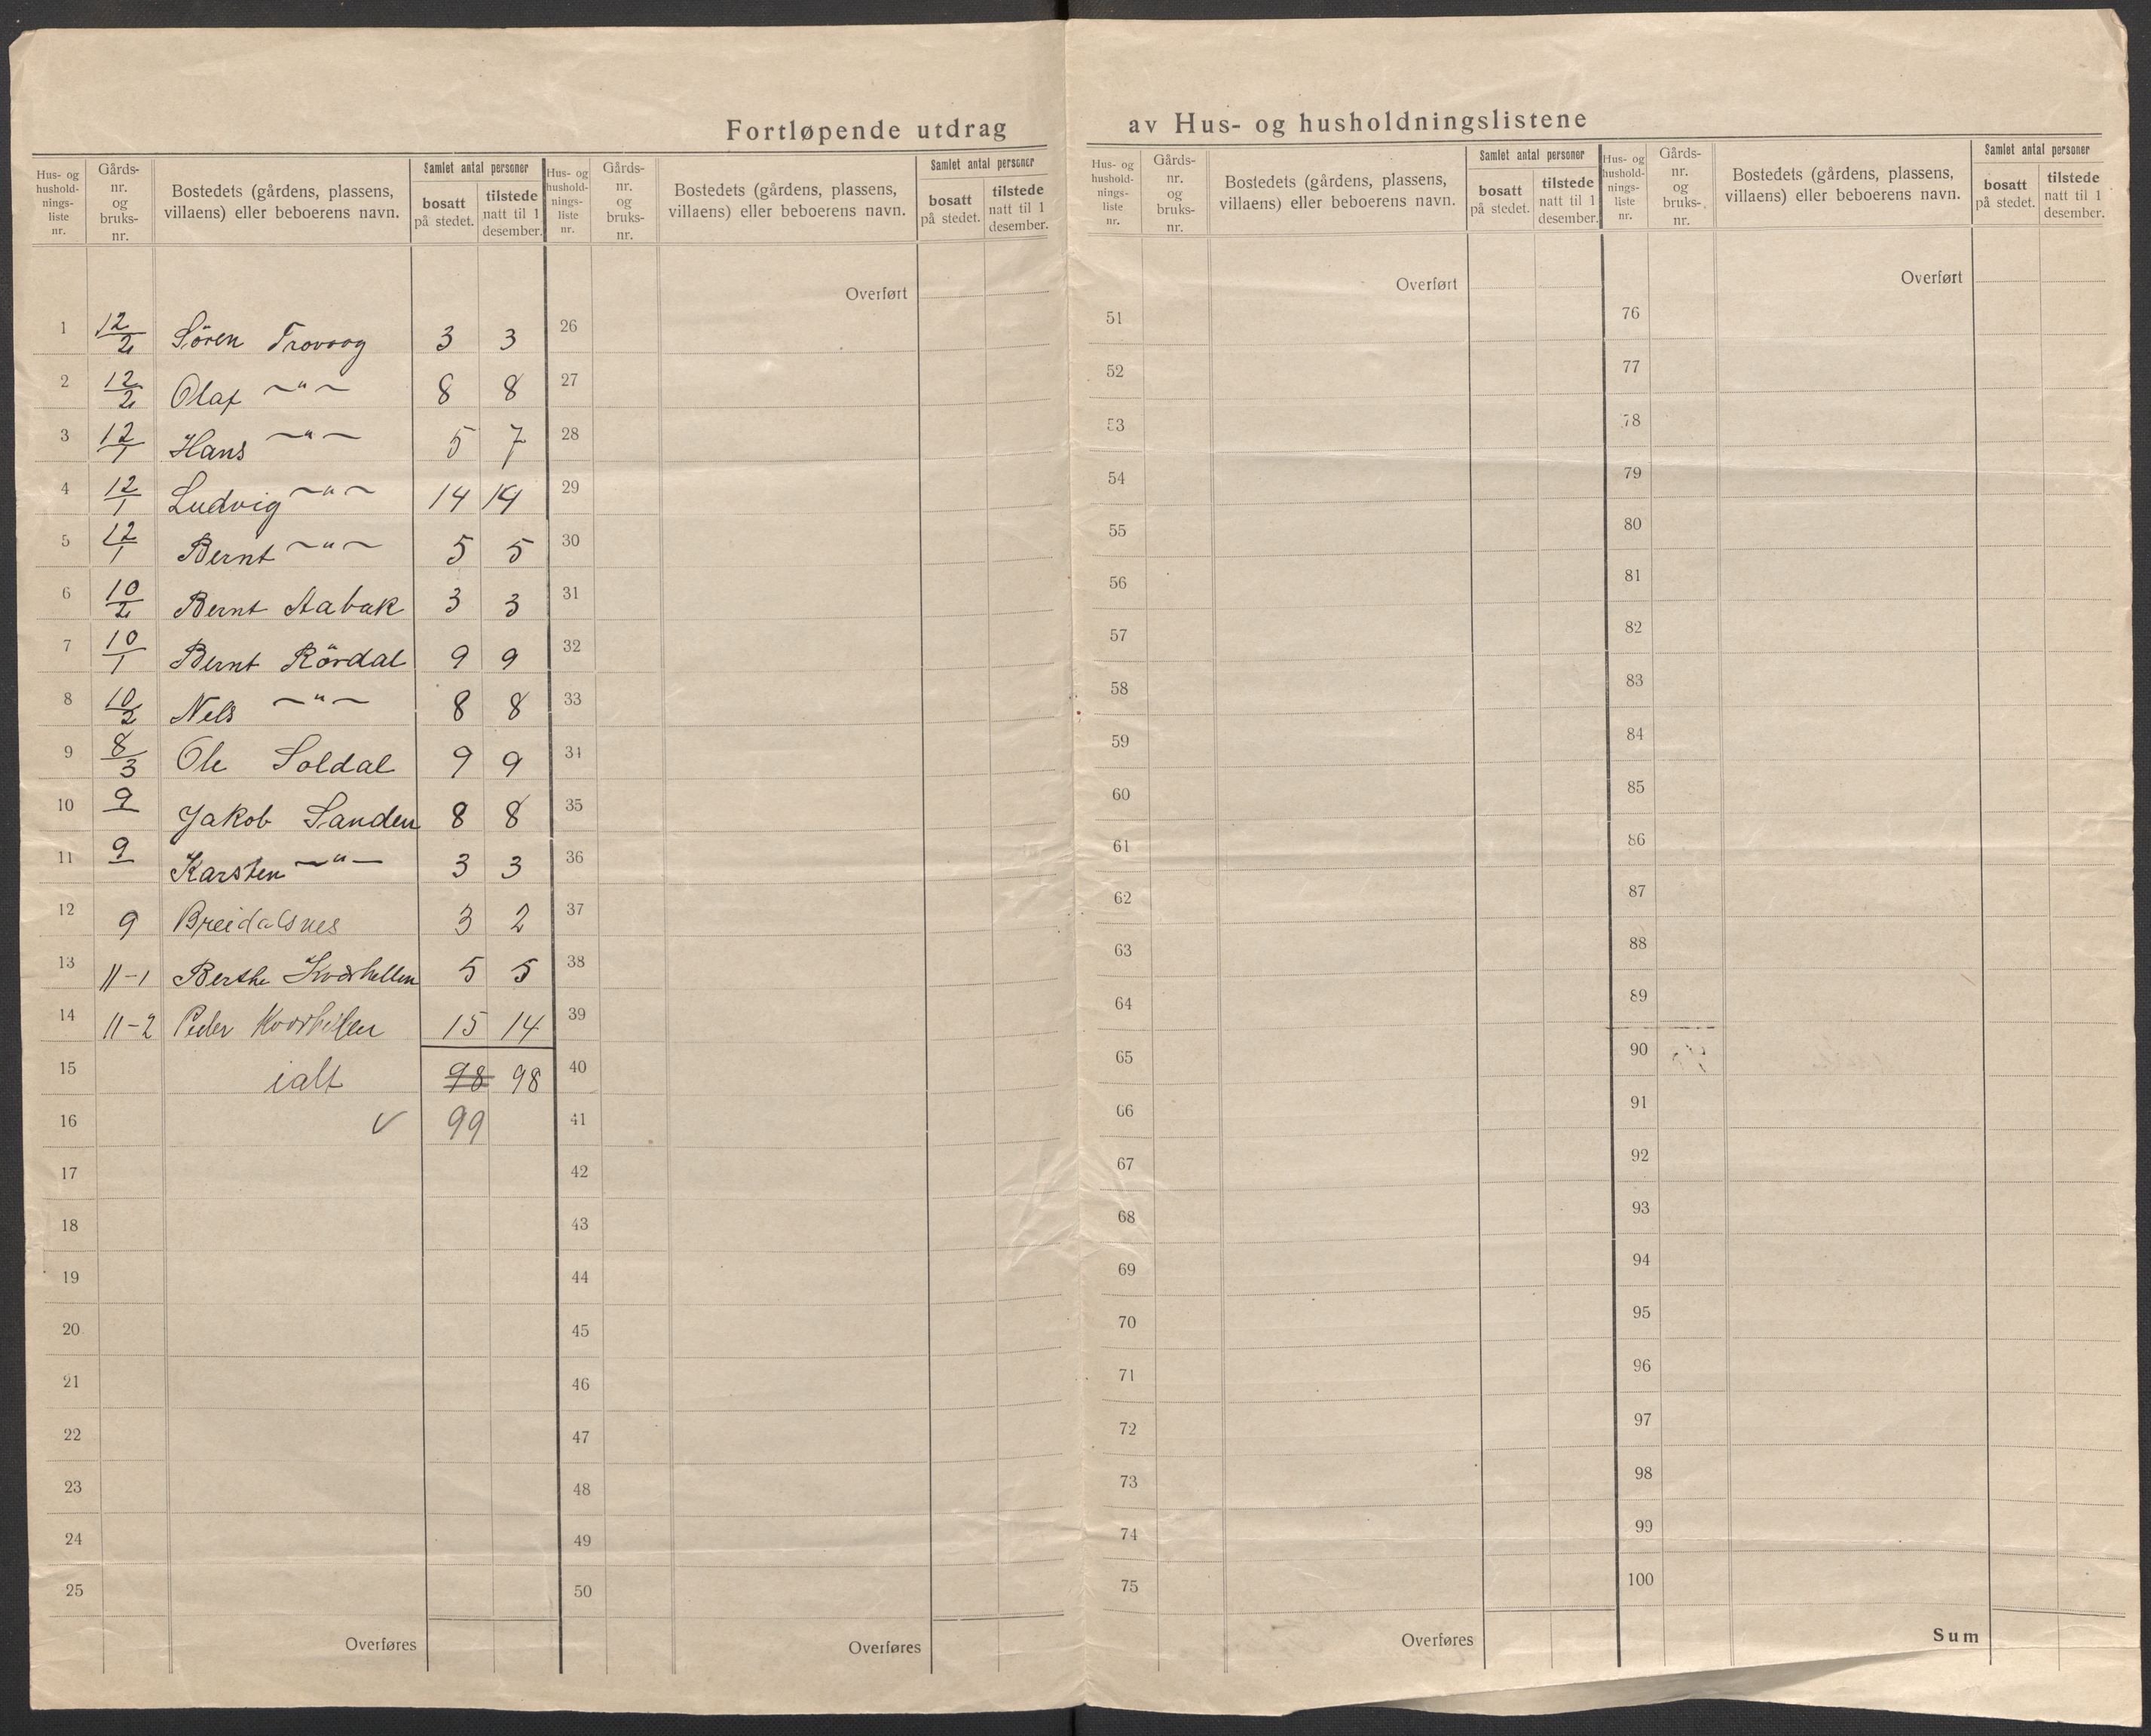 Fortløpende utdrag av Hus- og husholdningslistene
Hus- og hushold- nings- liste nr. | Gårds- nr. og bruks- nr. | Bostedets (gårdens, plassens, villaens) eller beboerens navn. | Samlet antal personer | bosatt på stedet. | tilstede natt til 1 desember.
Hus- og hushold- nings- liste nr. | Gårds- nr. og bruks- nr. | Bostedets (gårdens, plassens, villaens) eller beboerens navn. | Samlet antal personer | bosatt på stedet. | tilstede natt til 1 desember.
Hus- og hushold- nings- liste nr. | Gårds- nr. og bruks- nr. | Bostedets (gårdens, plassens, villaens) eller beboerens navn. | Samlet antal personer | bosatt på stedet. | tilstede natt til 1 desember.
Hus- og hushold- nings- liste nr. | Gårds- nr. og bruks- nr. | Bostedets (gårdens, plassens, villaens) eller beboerens navn. | Samlet antal personer | bosatt på stedet. | tilstede natt til 1 desember.
1 12/2 Sören Trovaag 3 3
2 12/2 Olaf ~"~ 8 8
3 12/1 Hans ~"~ 5 7
4 12/1 Ludvig ~"~ 14 14
5 12/1 Bernt ~"~ 5 5
6 10/2 Bernt Aabak 3 3
7 10/1 Bernt Rördal 9 9
8 10/2 Nels ~"~ 8 8
9 8/3 Ole Soldal 9 9
10 9 Jakob Sanden 8 8
11 9 Karsten ~"~ 3 3
12 9 Breidalsnes 3 2
13 11-1 Berthe Kværhellen 5 5
14 11-2 Peder 15 14
15 ialt 98 98
16 ✓ 99
17
18
19
20
21
22
23
24
25
Overføres
Overført
26
27
28
29
30
31
32
33
34
35
36
37
38
39
40
41
42
43
44
45
46
47
48
49
50
Overføres
Overført
51
52
53
54
55
56
57
58
59
60
61
62
63
64
65
66
67
68
69
70
71
72
73
74
75
Overføres
Overført
76
77
78
79
80
81
82
83
84
85
86
87
88
89
90
91
92
93
94
95
96
97
98
99
100
Sum